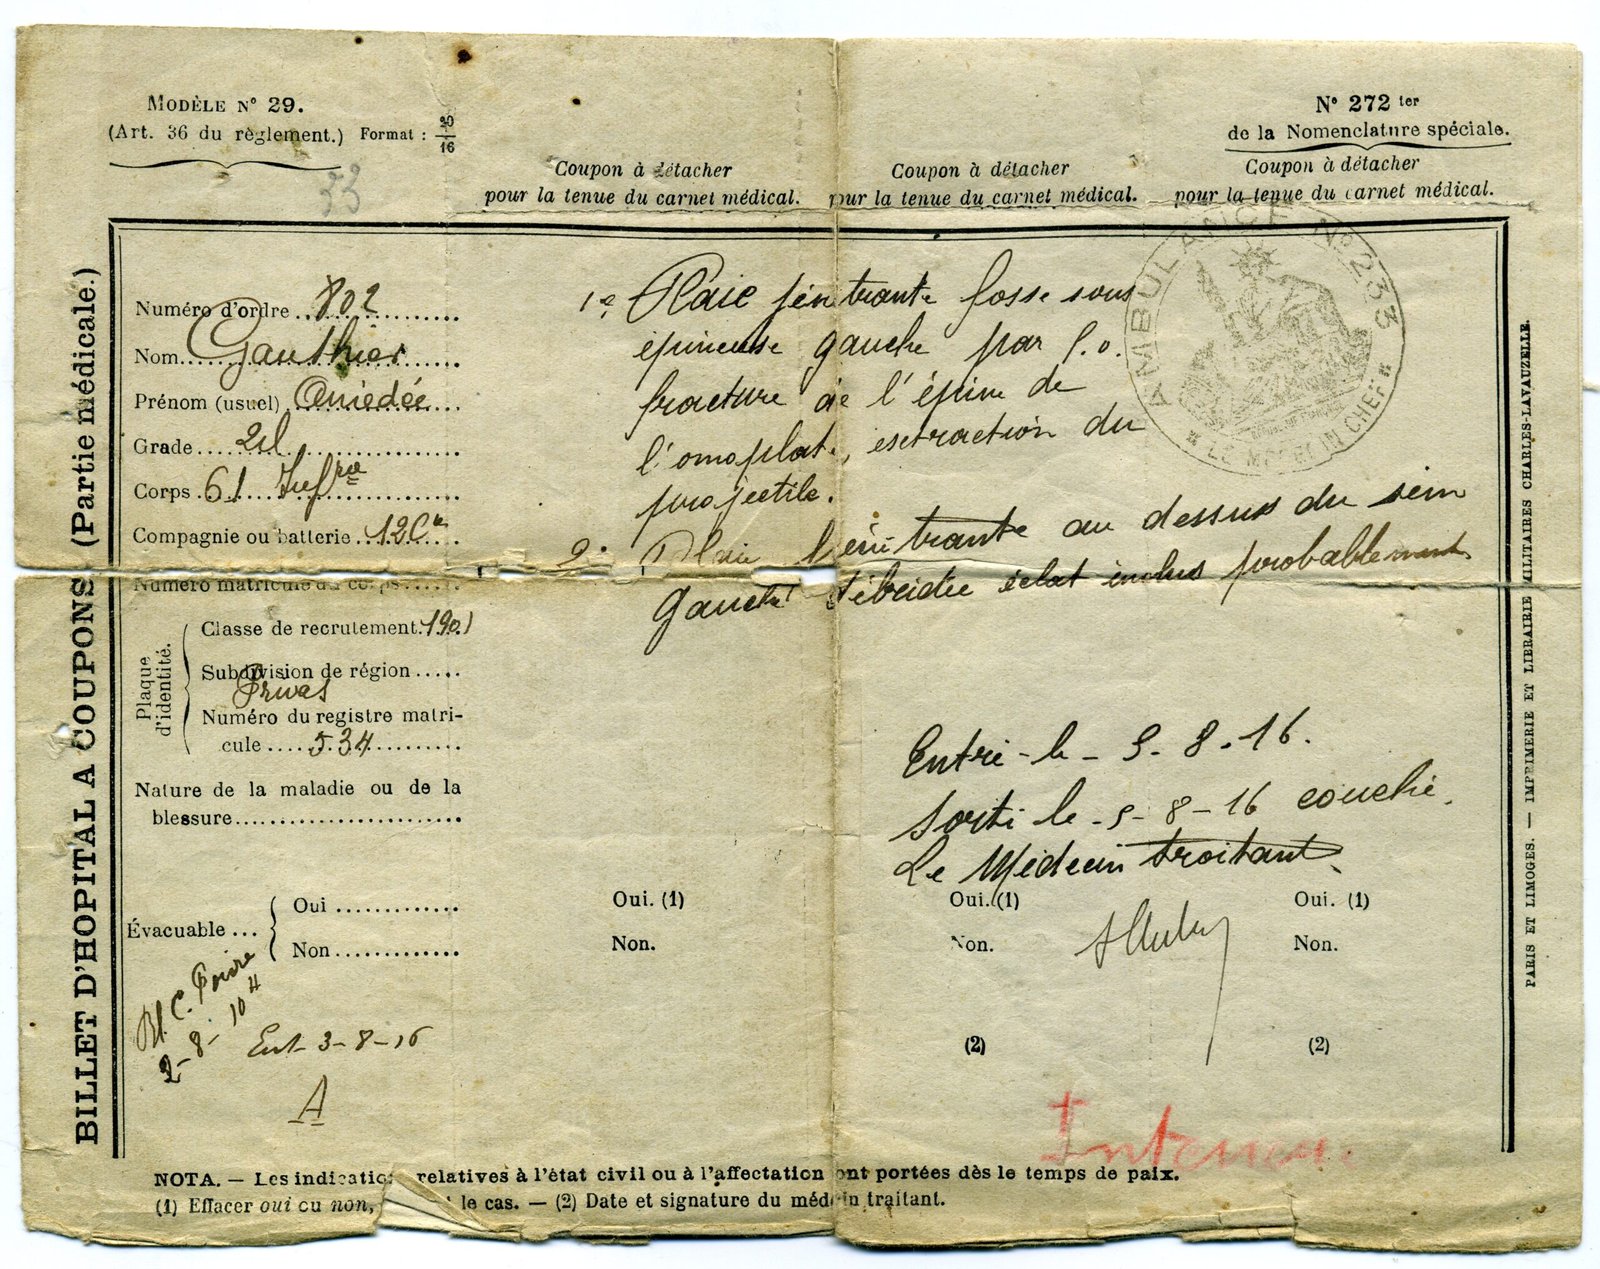 MODÈLE N° 29.
(Art. 36 du règlement.) Format : 16
N° 272 ter
de la Nomenclature spéciale.
33
Coupon à détacher
pour la tenue du carnet médical.
Coupon à détacher
pour la tenue du carnet médical.
Coupon à détacher
pour la tenue du carnet médical.
BILLET D'HOPITAL A COUPONS (Partie médicale.)
Numéro d'ordre 802
Nom Gauthier
Prénom (usuel) Amédée
Grade 2cl
Corps 61 Infrie
Compagnie ou batterie 12 Cie
Numéro matricule du corps
Plaque d'identité.
Classe de recrutement. 1901
Subdivision de région
Privas
Numéro du registre matri-
cule 534
Nature de la maladie ou de la
blessure
Évacuable
Oui
Non
Bl. C. Poivre
2-8-10 H
Ent 3-8-16
A
1° Plaie pénétrante fosse sous
épineuse gauche par
fracture de l'épine de
l'omoplate, extraction du
projectile.
2° Plaie pénétrante au dessus du sein
gauche débridée éclat inclus probablement
AMBULANCE N° 233
LE MÉDECIN CHEF
Entré le 5-8-16.
Sorti le 5-8-16 couché.
Le Médecin traitant
Oui. (1)
Non.
Oui. (1)
Non.
(2)
Oui. (1)
Non.
(2)
NOTA. — Les indications relatives à l'état civil ou à l'affectation sont portées dès le temps de paix.
(1) Effacer oui ou non, le cas. — (2) Date et signature du médecin traitant.
PARIS ET LIMOGES. — IMPRIMERIE ET LIBRAIRIE MILITAIRES CHARLES-LAVAUZELLE.